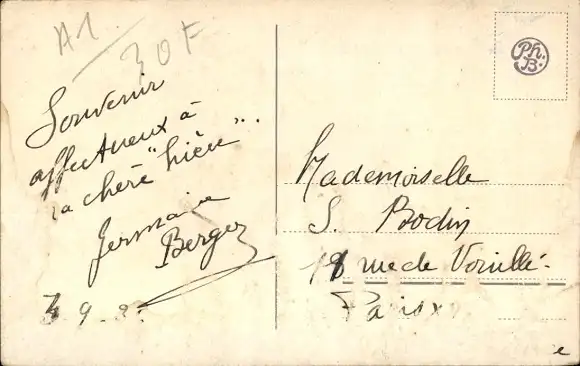 A1
30F
Souvenir
affectueux à
la chère
Germaine
Berger
9
Ph.
B.
Mademoiselle
S. Bodin
18 rue de
Paris